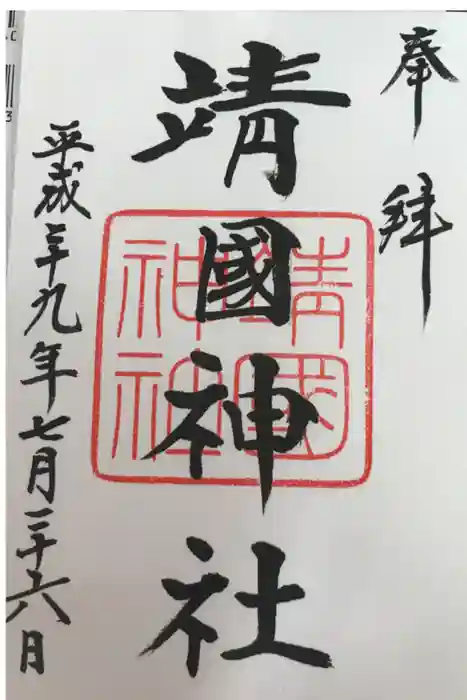 奉拜
靖國神社
靖國
神社
平成二十九年七月二十六日